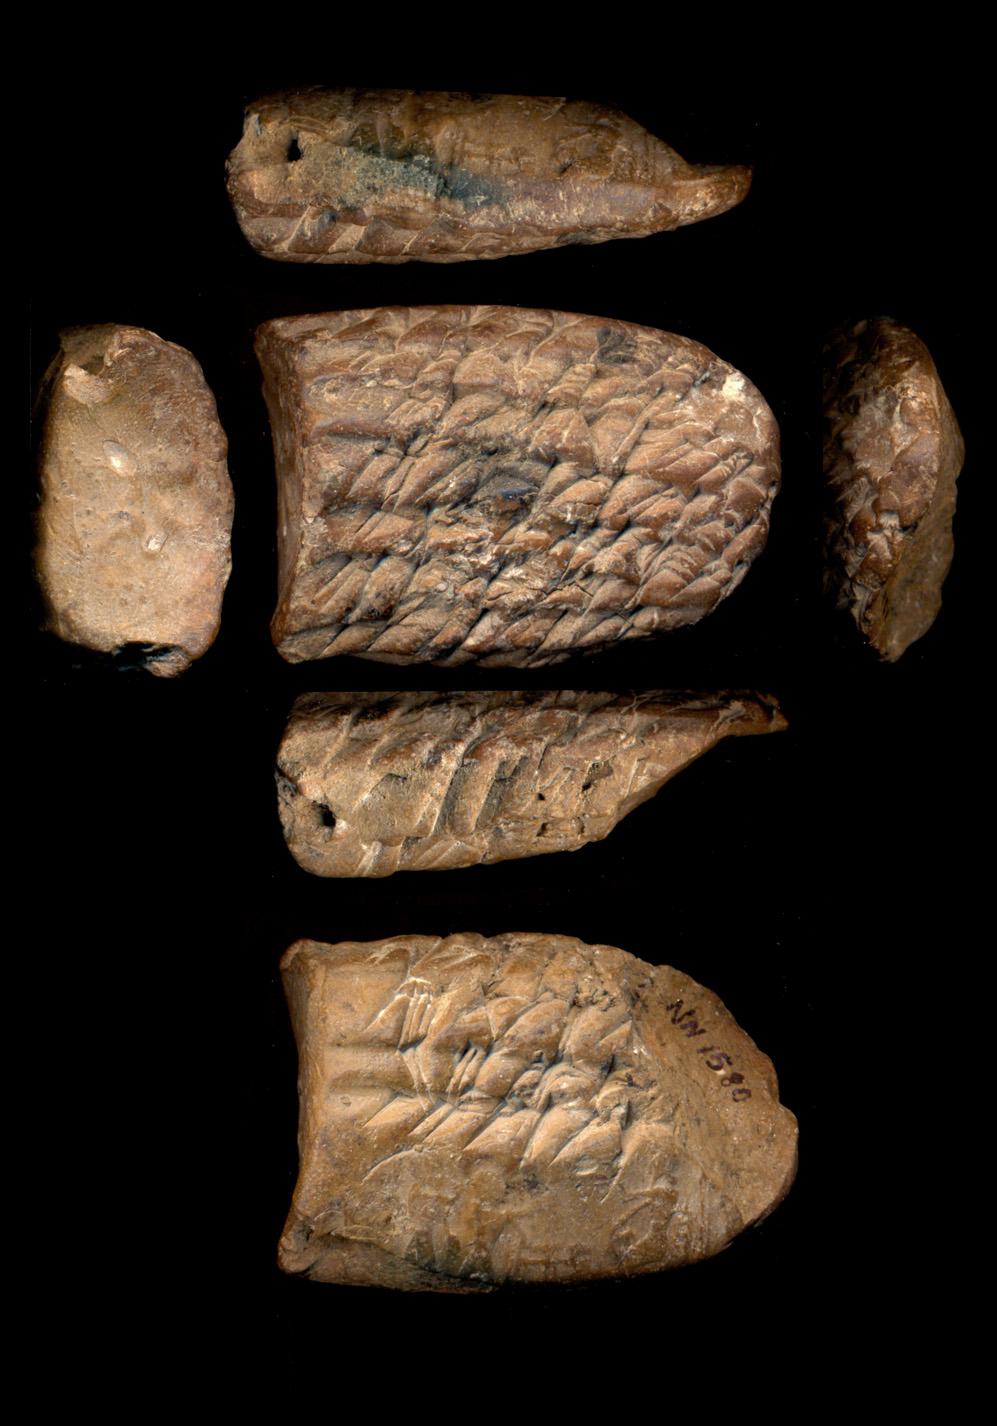 NN 1580